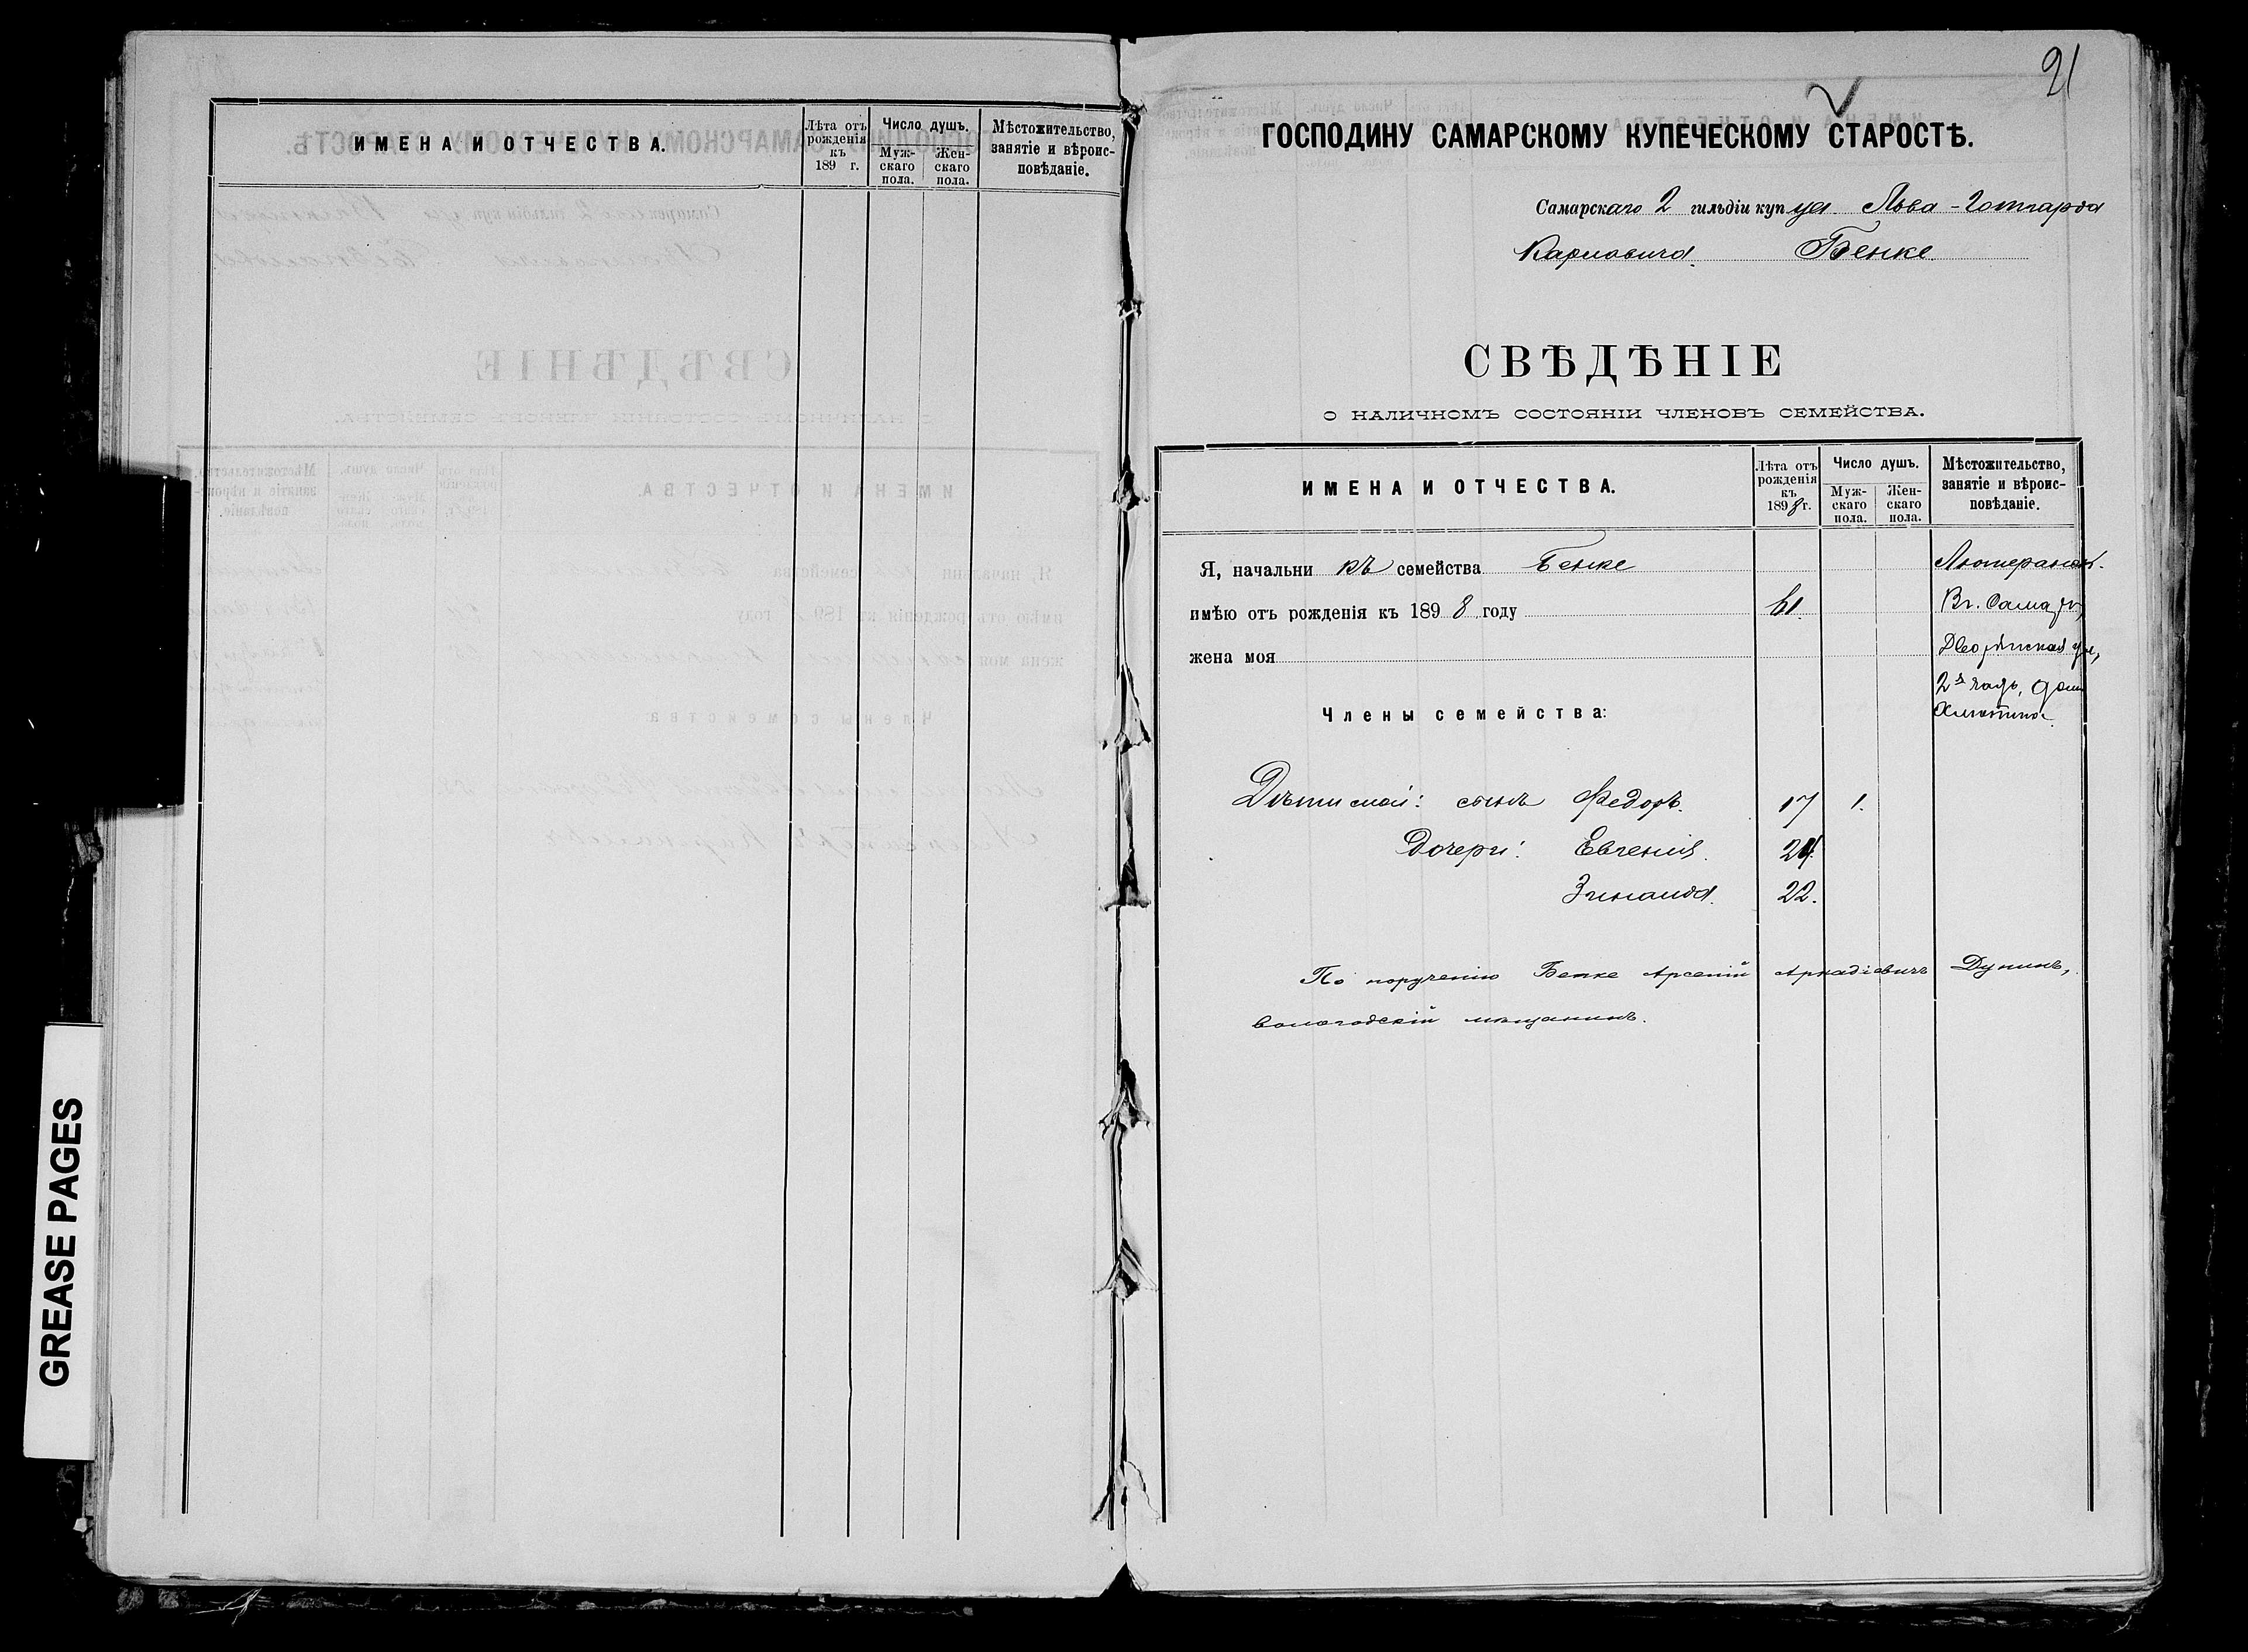 GREASE PAGES
ИМЕНА И ОТЧЕСТВА.
Лѣта отъ рожденія къ 189 г.
Число душъ.
Мужскаго пола.
Женскаго пола.
Мѣстожительство, занятіе и вѣроисповѣданіе.
21
ГОСПОДИНУ САМАРСКОМУ КУПЕЧЕСКОМУ СТАРОСТѢ.
Самарскаго 2 гильдіи купца Льва-Готгарда
Карловича Бенке
СВѢДѢНІЕ
О НАЛИЧНОМЪ СОСТОЯНІИ ЧЛЕНОВЪ СЕМЕЙСТВА.
ИМЕНА И ОТЧЕСТВА.
Лѣта отъ рожденія къ 1898 г.
Число душъ.
Мужскаго пола.
Женскаго пола.
Мѣстожительство, занятіе и вѣроисповѣданіе.
Я, начальникъ семейства Бенке
имѣю отъ рожденія къ 1898 году 61.
жена моя
Лютеранск.
Въ г. Самарѣ,
Дворянская ул,
2я часть, домъ
Члены семейства:
Дѣти мои: сынъ Федоръ. 17 1.
Дочери: Евгенія. 24.
Зинаида. 22.
По порученію Бенке Арсеній Аркадіевичъ Дунинъ,
вологодскій мѣщанинъ.